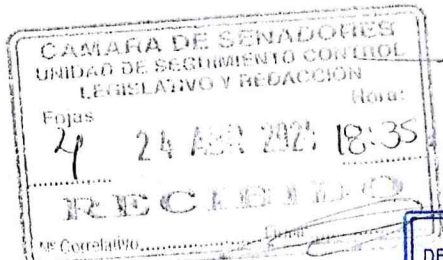 CAMARA DE SENADORES
UNIDAD DE SEGUIMIENTO CONTROL
LEGISLATIVO Y REDACCIÓN
Hora:
Fojas
4 24 ABR 2021 18:35
RECIBIDO
Nº Correlativo.................... Firma
DE